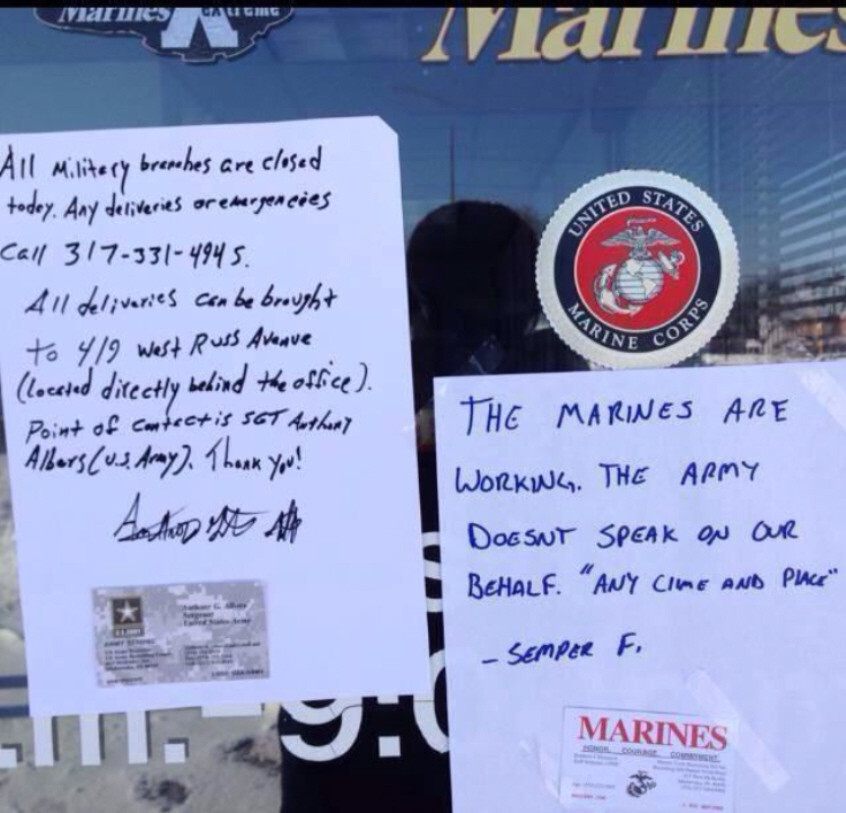 Marines extreme
Marines
All Military branches are closed
today. Any deliveries or emergencies
Call 317-331-4945.
All deliveries can be brought
to 419 West Russ Avenue
(located directly behind the office).
Point of contact is SGT Anthony
Albers (U.S. Army). Thank you!
UNITED STATES
MARINE CORPS
THE MARINES ARE
WORKING. THE ARMY
DOESNT SPEAK ON OUR
BEHALF. "ANY CLIME AND PLACE"
- SEMPER F.
Anthony G. Albers
Sergeant
United States Army
MARINES
HONOR. COURAGE. COMMITMENT.
.m.-9:0